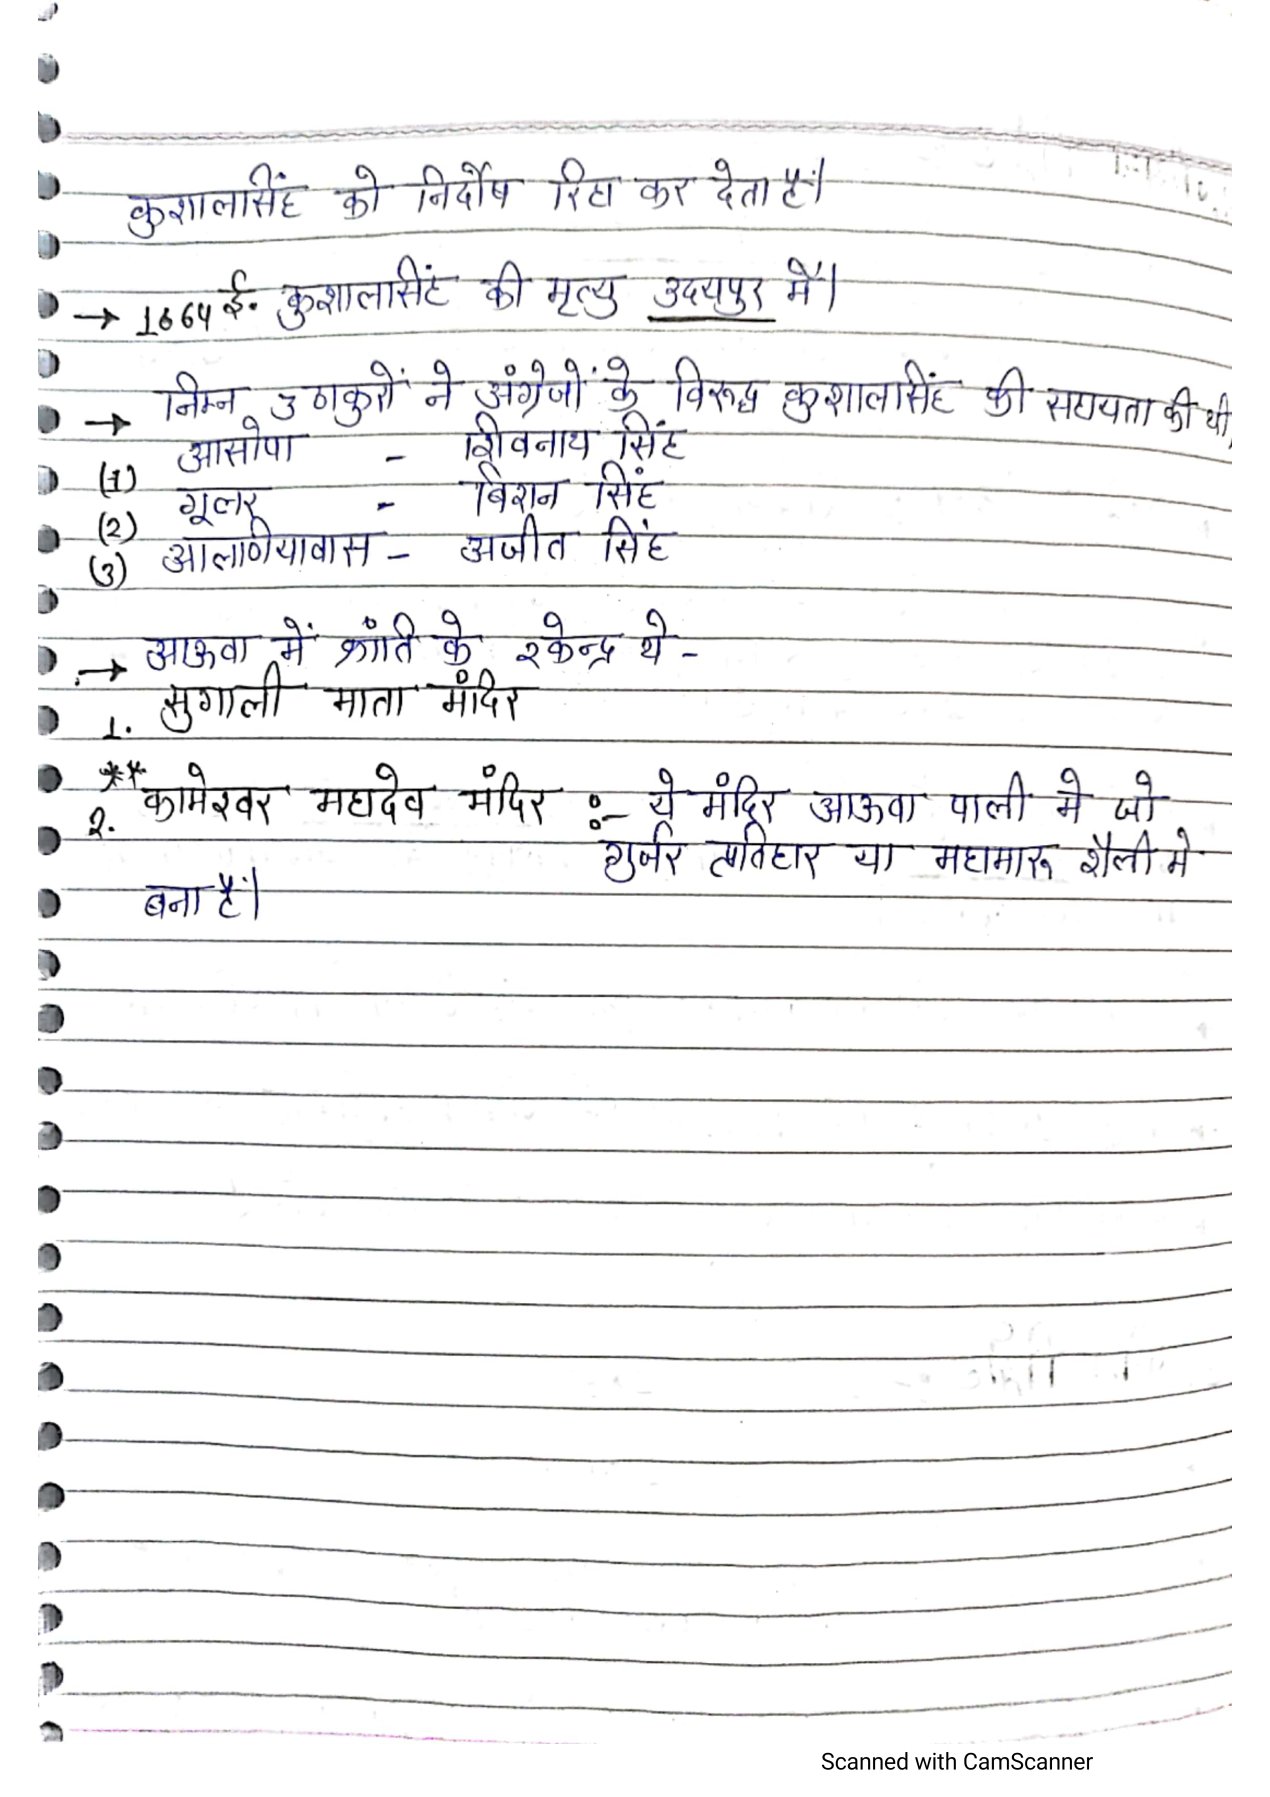 कुशालसिंह को निर्दोष रिहा कर देता हैं।
→ 1864 ई. कुशालसिंह की मृत्यु उदयपुर में।
→ निम्न 3 ठाकुरों ने अंग्रेजों के विरूद्ध कुशालसिंह की सहायता की थी,
(1) आसोपा - शिवनाथ सिंह
(2) गूलर - बिशन सिंह
(3) आलणियावास - अजीत सिंह
→ आऊवा में क्रांति के २ केन्द्र थे -
1. सुगाली माता मंदिर
** 2. कामेश्वर महादेव मंदिर :- ये मंदिर आऊवा पाली मे जो
गुर्जर प्रतिहार या महामारू शैली मे
बना हैं।
Scanned with CamScanner